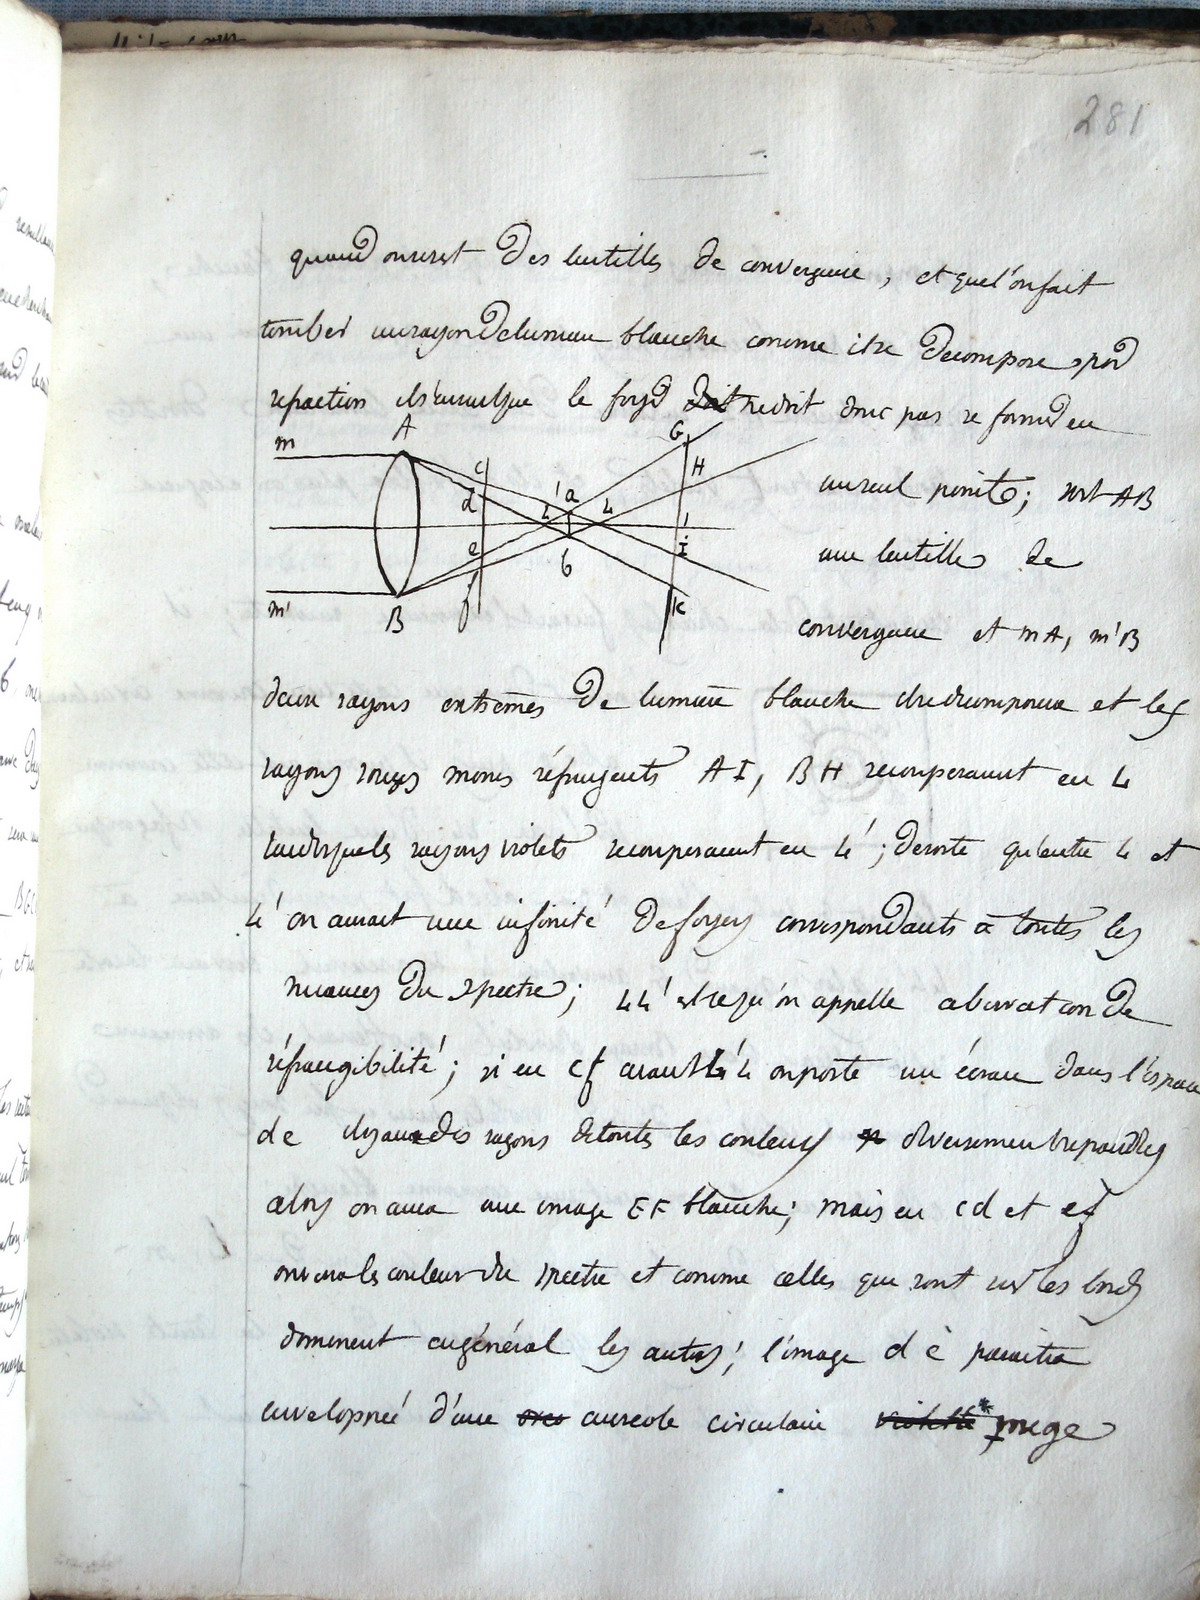 281
quand on se sert des lentilles de convergence, et que l'on fait
tomber un rayon de lumiere blanche comme il se decompose par
refraction il s'ensuit que le foyer ne doit donc pas se former en
un seul point; soit AB
une lentille de
convergence et mA, m'B
m A c d a L' L G H
e b I
m' B f K
deux rayons extrêmes de lumiere blanche ils se decomposera et les
rayons rouges moins réfrangents AI, BH se couperaient en L
tandis que les rayons violets se couperaient en L'; de sorte qu'entre L et
L' on aurait une infinité de foyers correspondants à toutes les
nuances du spectre; LL' est ce qu'on appelle aberration de
réfrangibilité; si en cf avant L'L on porte un écran dans l'espace
de il y aura des rayons de toutes les couleurs diversement repandues
alors on aura une image EF blanche; mais en cd et ef
on aura les couleur du spectre et comme celles qui sont sur les bords
dominent en général les autres; l'image d e paraitra
enveloppée d'une aureole circulaire violette rouge